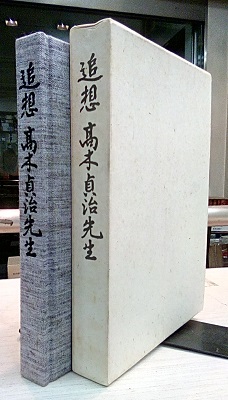 追想 髙木貞治先生
追想 髙木貞治先生